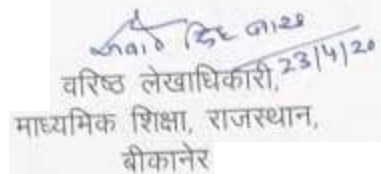 सिंह
23/4/20
वरिष्ठ लेखाधिकारी,
माध्यमिक शिक्षा, राजस्थान,
बीकानेर